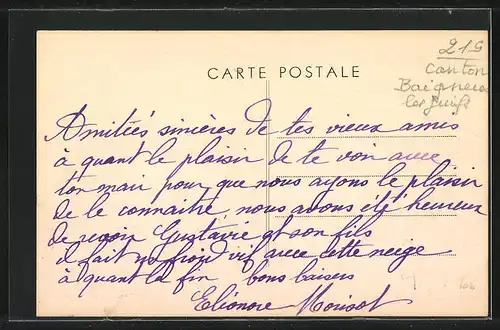 CARTE POSTALE
219
Canton
Baigneux
les Juifs
Amitiés sincères de tes vieux amis
à quant le plaisir de te voir avec
ton mari pour que nous ayons le plaisir
de le connaitre, nous avons été heureux
de revoir Gustave et son fils
il fait un froid vif avec cette neige
à quant la fin bons baisers
Eléonore Morisot